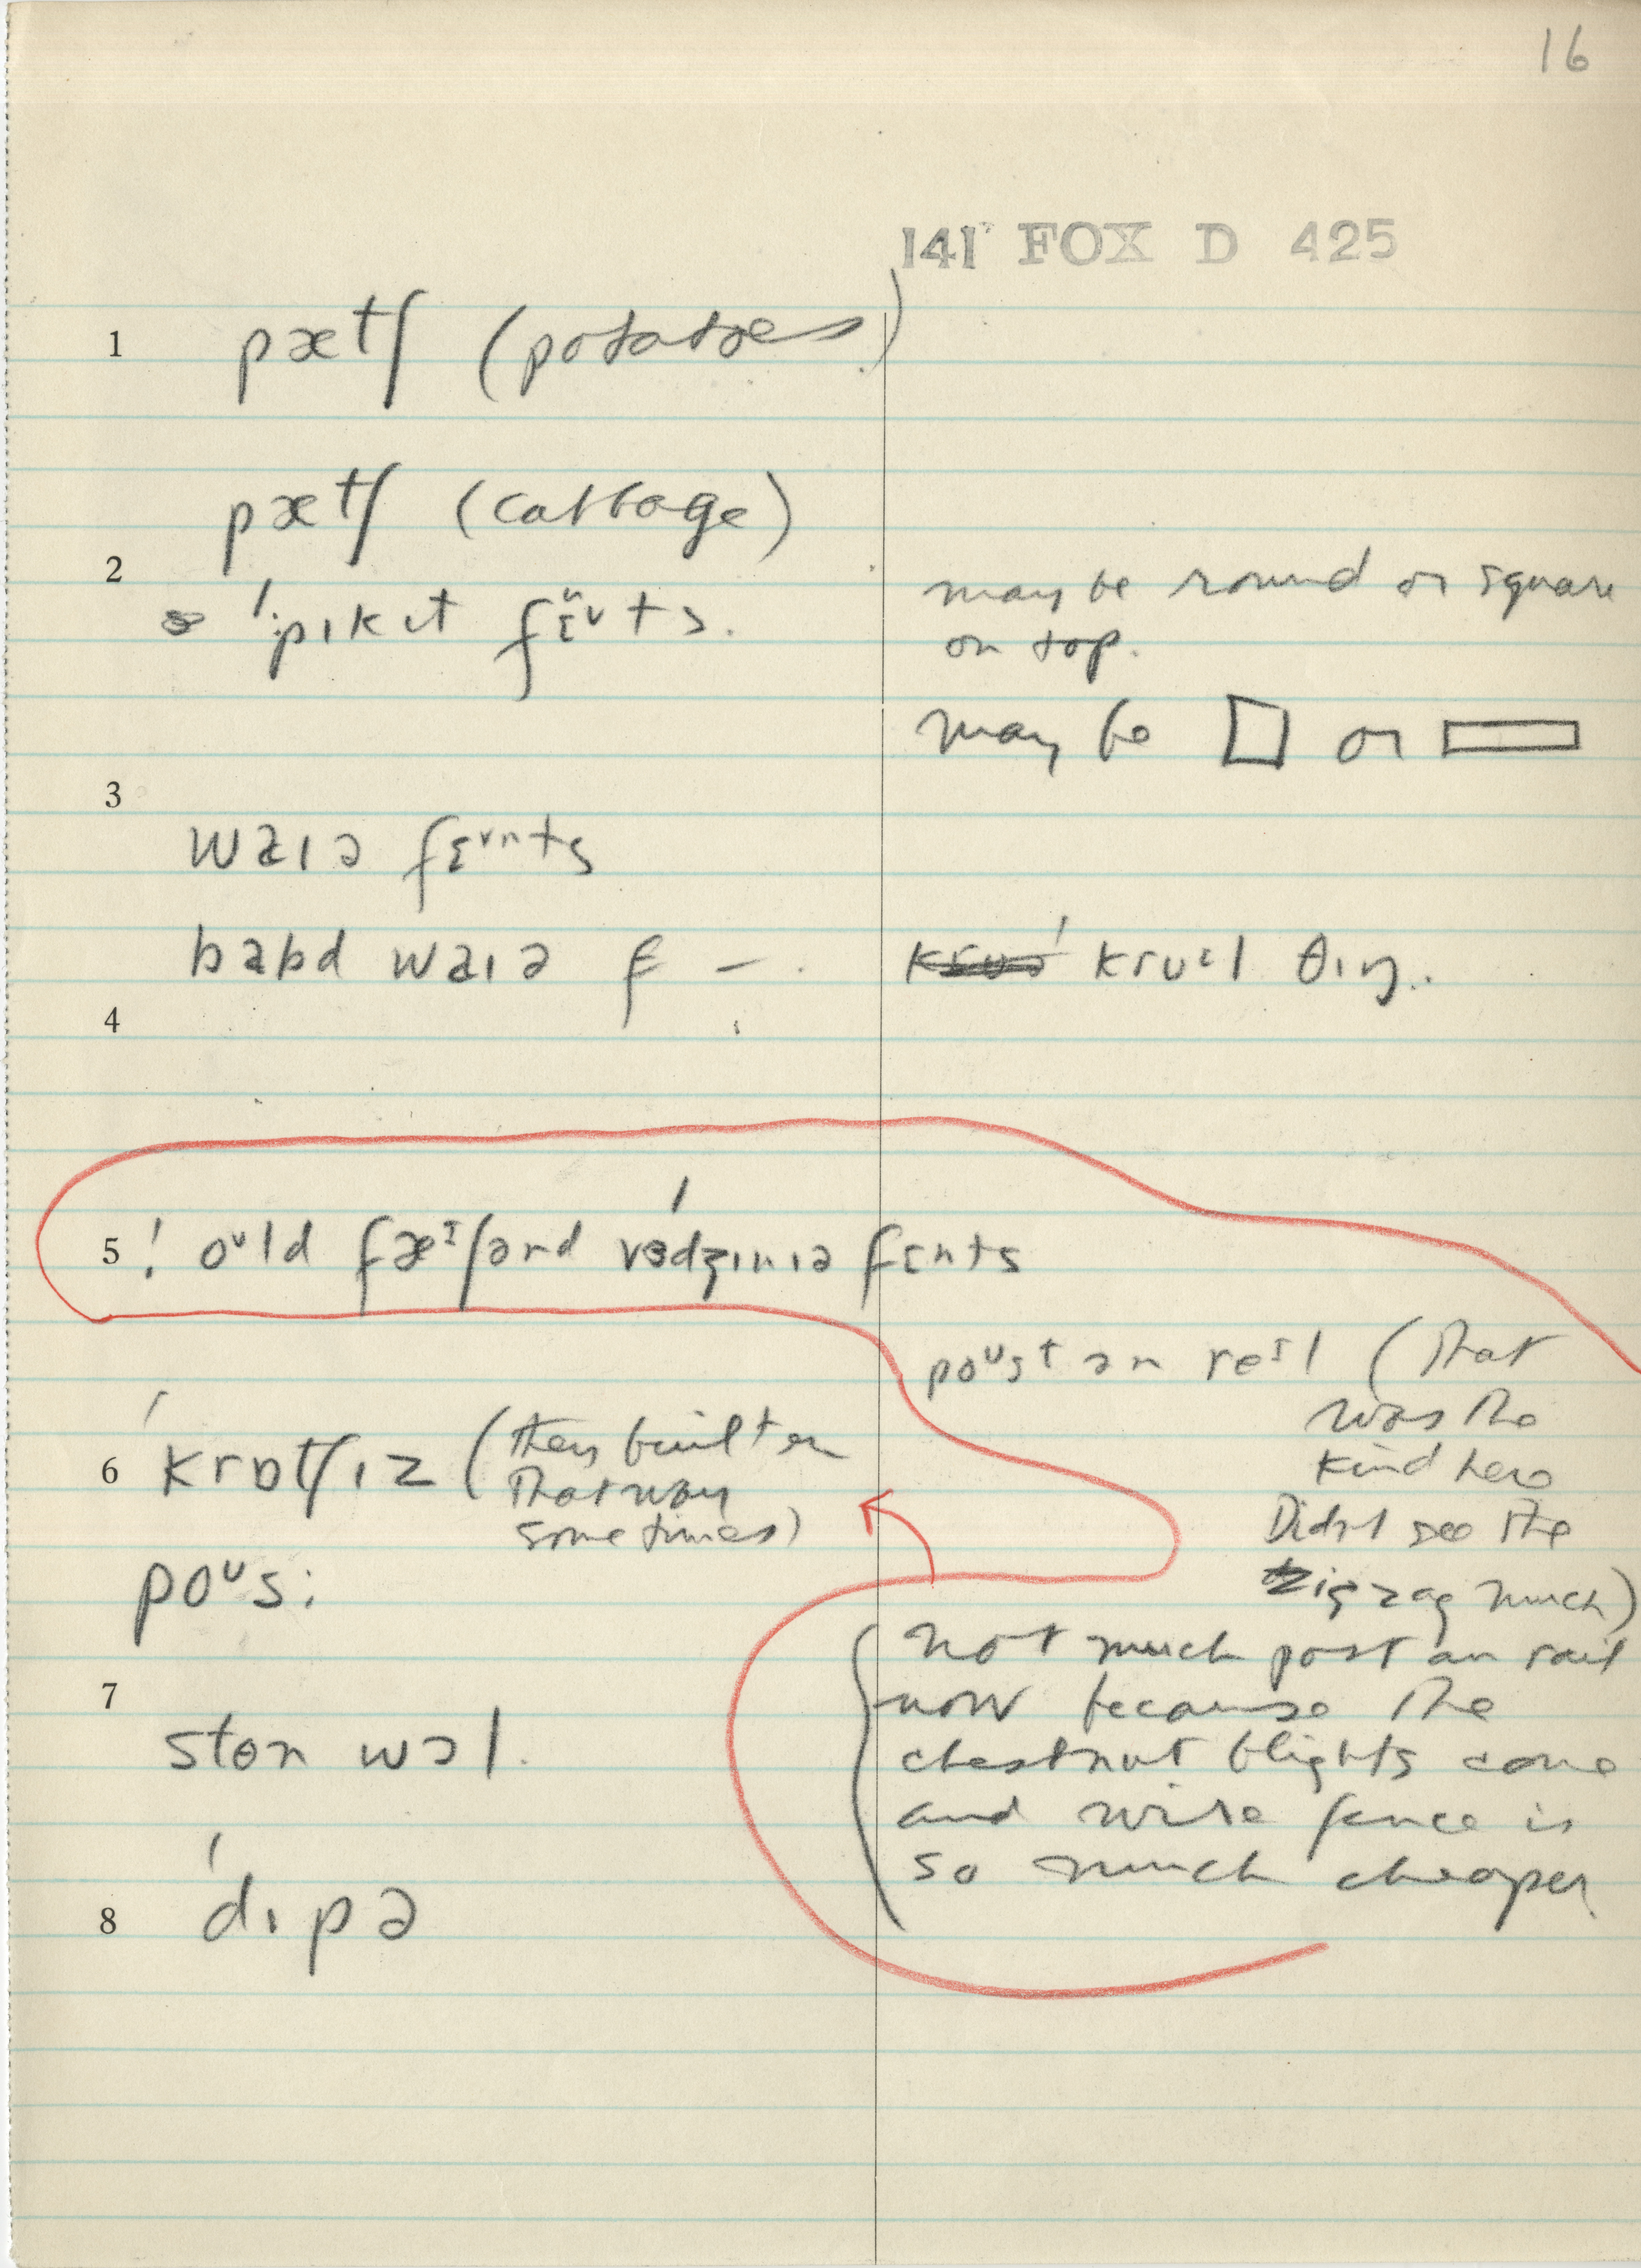 16
141 FOX D 425
1 pætʃ (potatoes)
pætʃ (cabbage)
2
ˈpɪkɪt
may be round or square
on top.
may be or
3
waɪə fɛᵛnts
babd waɪə f —.
krʊɛl θɪŋ..
4
5 ! oᵘld fæᴵʃənd vɜdʒɪnɪə fɛnts
poᵘst ən reᴵl (That
was the
kind here
Didn't see the
zigzag much)
6 ˈkrɒtʃɪz (they built em
that way
sometimes)
poᵘs:
not much post an rail
now because the
chestnut blights come
and wire fence is
so much cheaper
7
ston wɔl.
8 ˈdɪpə